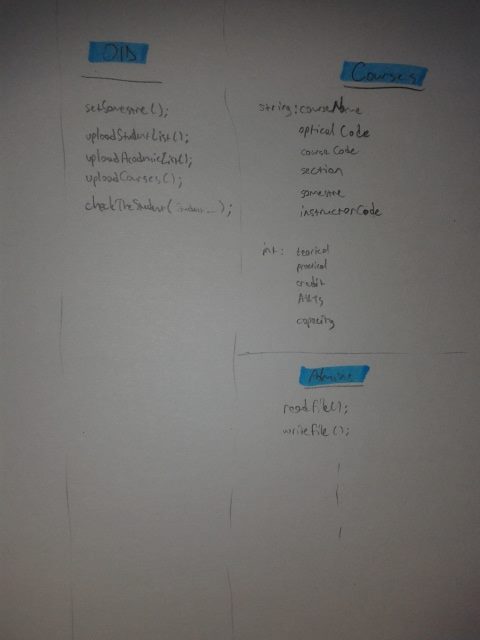 OIB
setSomestre();
uploadStudentList();
uploadAcademicList();
uploadCourses();
checkTheStudent(student...);
Courses
string: courseName
opticalCode
courseCode
section
somestre
instructorCode
int: teorical
practical
credit
AKTS
capacity
readFile();
writeFile();